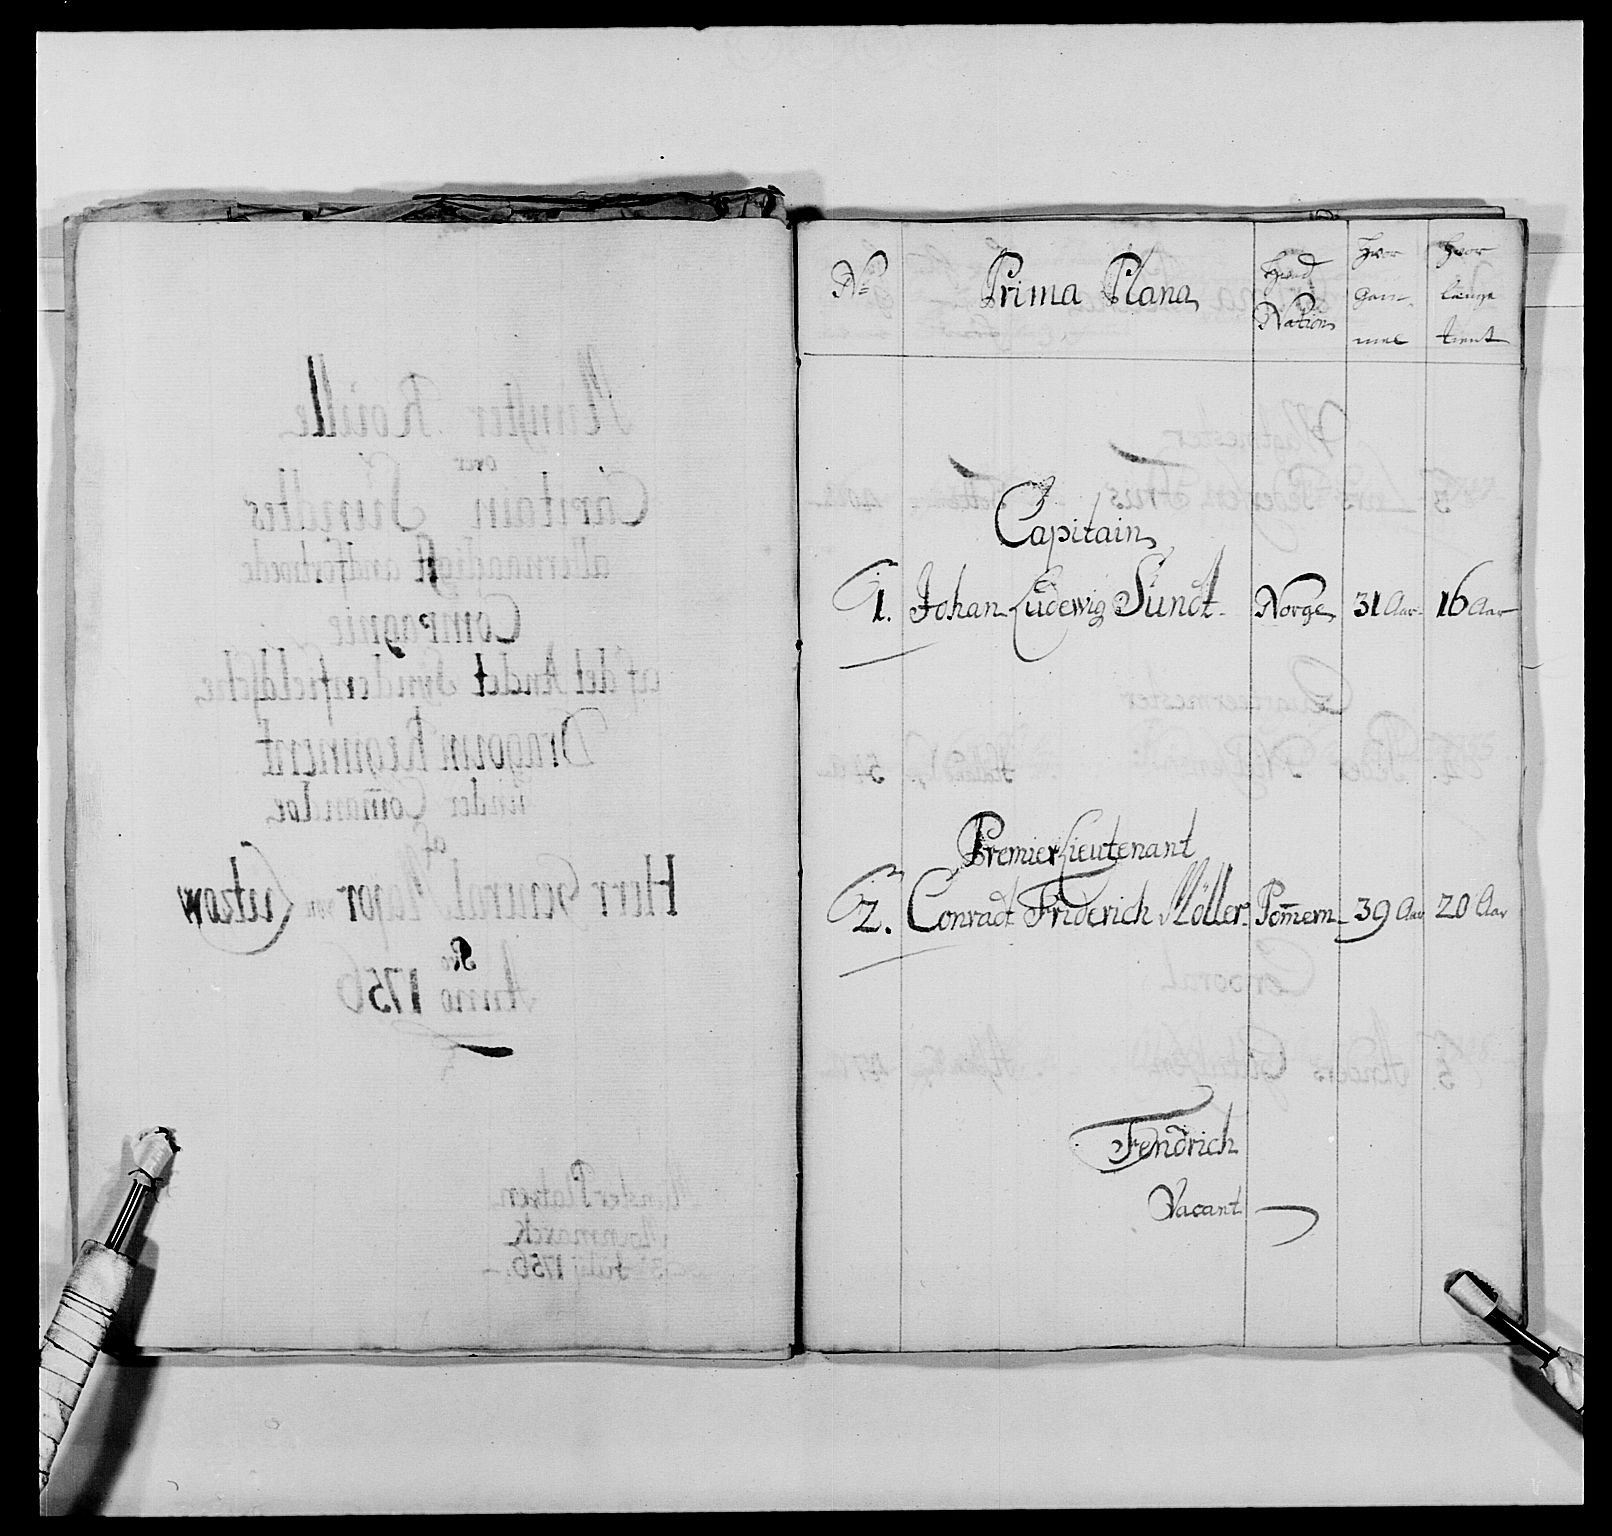 Mynster Roulle
over
Capitain Sundts
allernaadigst anfortroede
Compagnie
af det Andet Syndenfieldsche
Dragoun Regiment
under Com̄ando
af
Herr General Major von Lützow
Pro
Anno 1756
Mynster Platzen
Moenmarck
Julij 1756.
No
Prima Plana
Hvad Nation
Hvor Gam-mel
Hvor længe tient
Capitain
1. Johan Ludewig Sundt. Norge 31 Aar. 16 Aar
Premier Lieutenant
2. Conradt Friderich Möller. Pom̄ern 39 Aar 20 Aar
Fendrich
Vacant